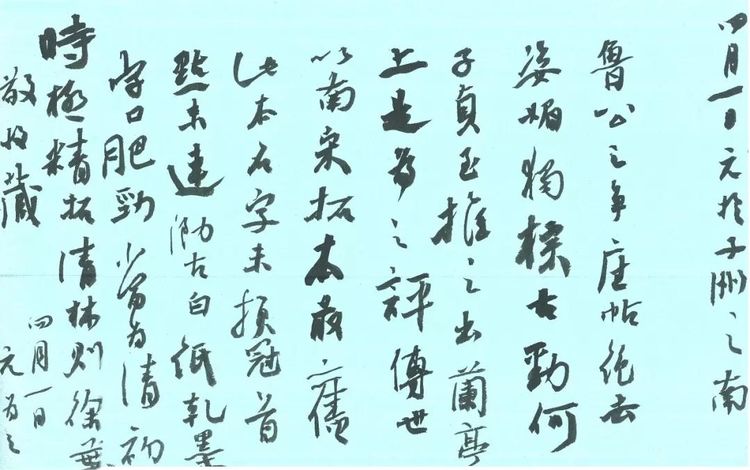 四月一日元於子州之南
魯公之争座帖绝去
姿媚獨標古勁何
子貞至推之出蘭亭
上是為之評傳世
以南宋拓本最舊
此本名字未損冠首
點未連泐古白紙乾墨
字口肥勁當為清初
時極精拓清林則徐葉
藏
四月一日
元為之